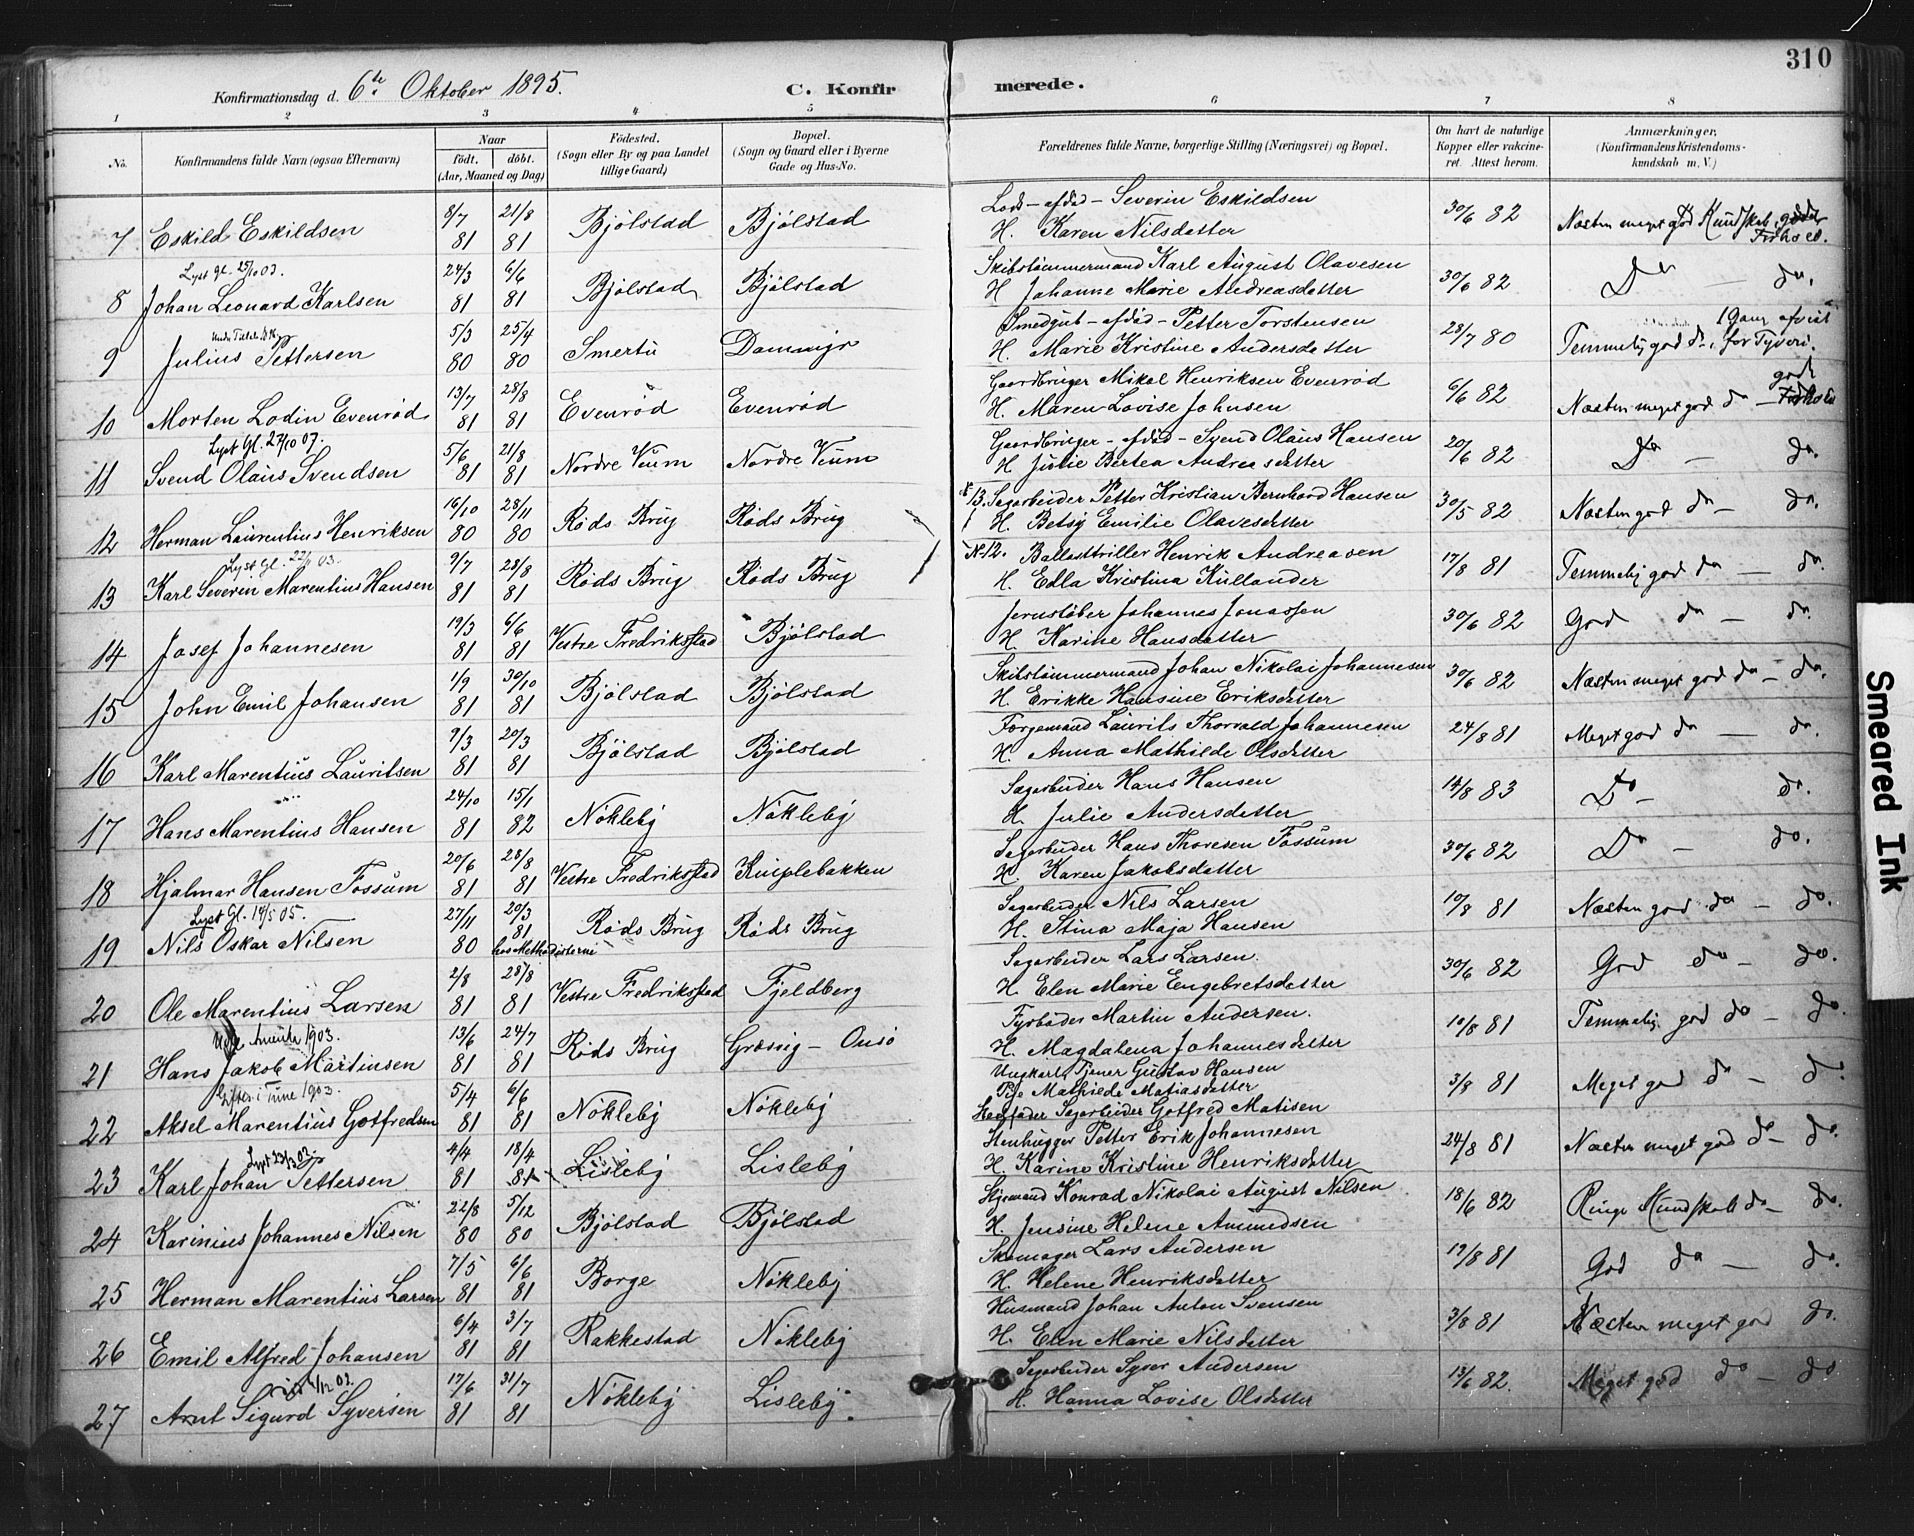 310
Konfirmationsdag d. 6te Oktober 1895. C. Konfirmerede.
1 2 3 4 5 6 7 8
No. Konfirmandens fulde Navn (ogsaa Efternavn) Naar født. døbt. (Aar, Maaned og Dag) Fødested. (Sogn eller By og paa Landet tillige Gaard) Bopæl. (Sogn og Gaard eller i Byerne Gade og Hus-No. Forældrenes fulde Navne, borgerlige Stilling (Næringsvei) og Bopæl. Om havt de naturlige Kopper eller vaccineret. Attest herom. Anmærkninger, (Konfirmandens Kristendomskundskab m. V.)
7 Eskild Eskildsen 8/7 81 21/8 81 Bjølstad Bjølstad Lods - afdød - Severin Eskildsen H. Karen Nilsdatter 30/6 82 Næsten meget god Kundskab, godt Forhold.
Lyst Gl. 25/10 03.
8 Johan Leonard Karlsen 24/3 81 6/6 81 Bjølstad Bjølstad Skibstømmermand Karl August Olavesen H. Johanne Marie Andreasdatter 30/6 82 Do do.
9 Julius Pettersen 5/3 80 25/4 80 Smertu Dammyr Smedgut - afdød - Petter Torstensen H. Marie Kristine Andersdatter 28/7 80 Temmelig god do, 1 Gang afvist for Tyveri.
10 Morten Lodin Evenrød 13/7 81 28/8 81 Evenrød Evenrød Gaardbruger Mikal Henriksen Evenrød H. Maren Lovise Johnsen 6/6 82 Næsten meget god do - godt Forhold
Lyst Gl. 27/10 07.
11 Svend Olaus Svendsen 5/6 81 21/8 81 Nordre Veum Nordre Veum Gaardbruger - afdød - Svend Olaus Hansen H. Julie Bertea Andreasdatter 20/6 82 Do - do.
12 Herman Laurentius Henriksen 16/10 80 28/11 80 Røds Brug Røds Brug 13. Sagarbeider Petter Kristian Bernhard Hansen H. Betsy Emilie Olavesdatter 30/5 82 Næsten god do - do.
Lyst Gl. 22/11 03.
13 Karl Severin Marentius Hansen 9/7 81 28/8 81 Røds Brug Røds Brug N. 12. Ballasttriller Henrik Andreasen H. Edla Kristina Kullander 17/8 81 Temmelig god do - do.
14 Josef Johannesen 19/3 81 6/6 81 Vestre Fredriksstad Bjølstad Jernstøber Johannes Jonassen H. Karine Hansdatter 30/6 82 God do - do.
15 John Emil Johansen 1/9 81 30/10 81 Bjølstad Bjølstad Skibstømmermand Johan Nikolai Johannesen H. Erikke Hansine Eriksdatter 30/6 82 Næsten meget god do - do.
16 Karl Marentius Lauritsen 9/3 81 20/3 81 Bjølstad Bjølstad Forgemand Laurits Thorvald Johannesen H. Anna Mathilde Olsdatter 24/8 81 Meget god do - do.
17 Hans Marentius Hansen 24/10 81 15/1 82 Nøkleby Nøkleby Sagarbeider Hans Hansen H. Julie Andersdatter 14/8 83 Do - do.
18 Hjalmar Hansen Fossum 20/6 81 28/8 81 Vestre Fredriksstad Kniplebakken Sagarbeider Hans Thoresen Fossum H. Karen Jakobsdatter 30/6 82 Do - do.
Lyst Gl. 14/5 05.
19 Nils Oskar Nilsen 27/11 80 20/3 81 hos Methodisterne Røds Brug Røds Brug Sagarbeider Nils Larsen H. Stina Maja Hansen 10/8 81 Næsten god do - do.
20 Ole Marentius Larsen 2/8 81 28/8 81 Vestre Fredriksstad Fjeldberg Sagarbeider Lars Larsen. H. Elen Marie Engebretsdatter 30/6 82 God do - do.
1903.
21 Hans Jakob Martinsen 13/6 81 24/7 81 Røds Brug Græsvig - Onsø Fyrbøder Martin Andersen. H. Magdalena Johannesdatter 10/8 81 Temmelig god do - do.
Giftes i Tune 1903.
22 Aksel Marentius Gotfredsen 5/4 81 6/6 81 Nøkleby Nøkleby Ungkarl Tjener Gustav Hansen Pige Mathilde Matiasdatter Stedfader Sagarbeider Gotfred Matisen 3/8 81 Meget god do - do.
Lyst 23/3 02.
23 Karl Johan Pettersen 4/4 81 18/4 81 Lisleby Lisleby Stenhugger Petter Erik Johannesen H. Karine Kristine Henriksdatter 24/8 81 Næsten meget god do - do.
24 Karinius Johannes Nilsen 22/8 80 5/12 80 Bjølstad Bjølstad Styrmand Konrad Nikolai August Nilsen H. Jensine Helene Amundsen 18/6 82 Ringe Kundskab do - do.
25 Herman Marentius Larsen 7/5 81 6/6 81 Borge Nøkleby Skomager Lars Andersen H. Helene Henriksdatter 19/8 81 God do - do.
26 Emil Alfred Johansen 6/4 81 3/7 81 Rakkestad Nøkleby Husmand Johan Anton Svensen H. Elen Marie Nilsdatter 3/8 81 Næsten meget god do.
27 Arnt Sigurd Syversen 17/6 81 31/7 81 Nøkleby Lisleby. Sagarbeider Syver Andersen H. Hanna Lovise Olsdatter 13/6 82. Meget god do - do
Smeared Ink